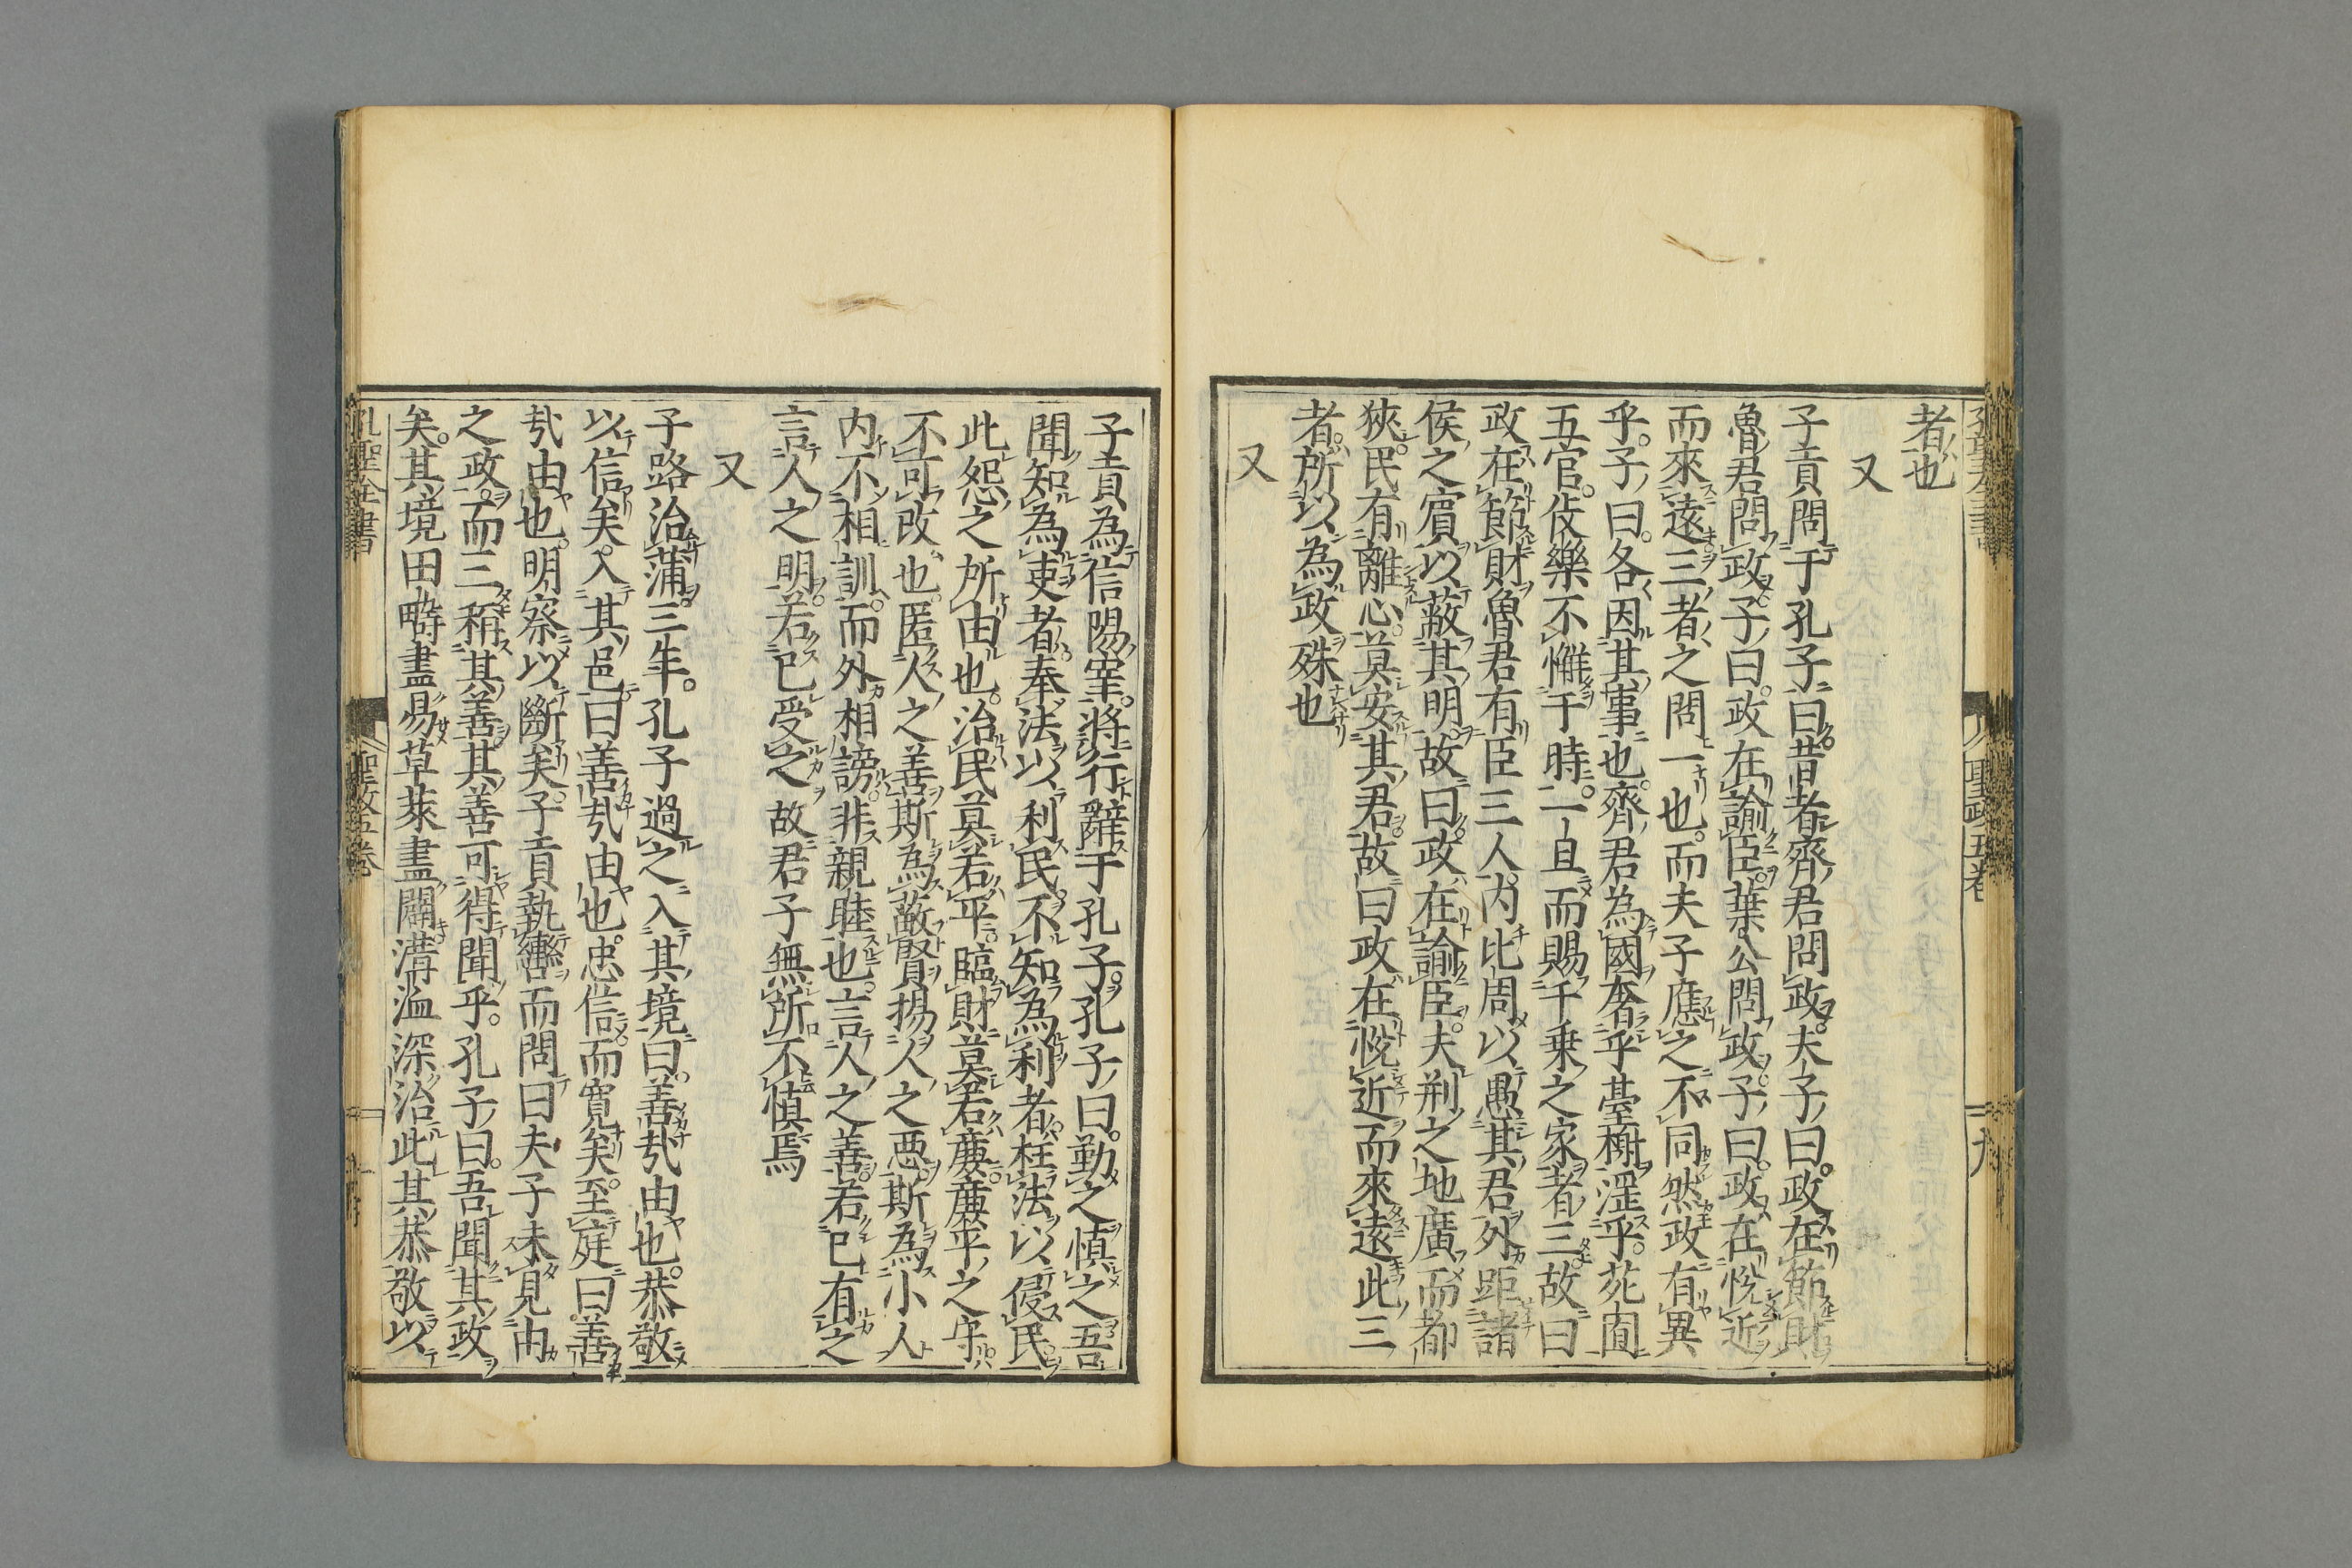 者也
又
子貢問于孔子曰昔者齊君問政夫子曰政在節財
魯君問政子曰政在諭臣葉公問政子曰政在悅近
而來遠三者之問一也而夫子應之不同然政有異
乎子曰各因其事也齊君為國奢乎臺榭淫乎苑囿
五官伎樂不懈于時一旦而賜千乘之家者三故曰
政在節財魯君有臣三人内比周以愚其君外距諸
侯之賓以蔽其明故曰政在諭臣夫荊之地廣而都
狹民有離心莫安其君故曰政在悅近而來遠此三
者所以為政殊也
又
子貢為信陽宰將行辭于孔子孔子曰勤之慎之吾
聞知為吏者奉法以利民不知為利者枉法以侵民
此怨之所由也治民莫若平臨財莫若廉廉平之守
不可改也匿人之善斯為蔽賢揚人之惡斯為小人
内不相訓而外相謗非親睦也言人之善若己有之
言人之明若己受之故君子無所不慎焉
又
子路治蒲三年孔子過之入其境曰善哉由也恭敬
以信矣入其邑曰善哉由也忠信而寛矣至庭曰善
哉由也明察以斷矣子貢執轡而問曰夫子未見由
之政而三稱其善其善可得聞乎孔子曰吾聞其政
矣其境田疇盡易草萊盡闢溝洫深治此其恭敬以
孔聖全書
聖政五卷